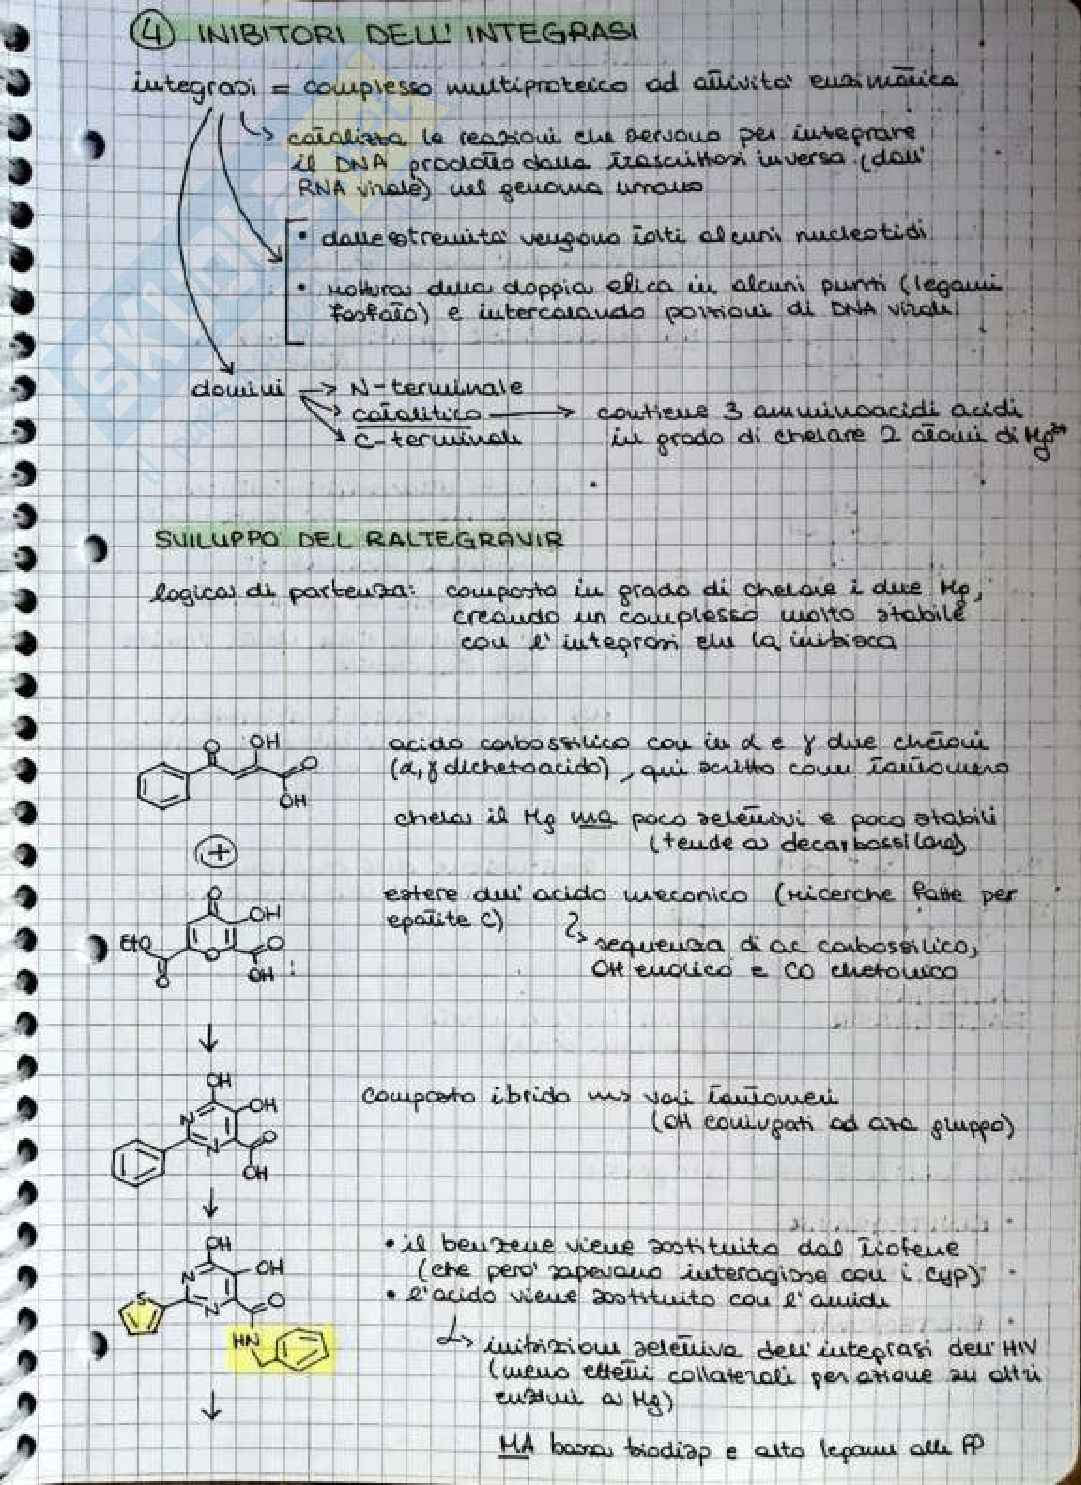 4 INIBITORI DELL'INTEGRASI
integrasi = complesso multiproteico ad attività enzimatica
catalizza le reazioni che servono per integrare
il DNA prodotto dalla trascrittasi inversa (dall'
RNA virale) nel genoma umano
• dalle estremità vengono tolti alcuni nucleotidi
• rottura della doppia elica in alcuni punti (legami
fosfato) e intercalando porzioni di DNA virale
domini → N-terminale
catalitico → contiene 3 amminoacidi acidi
C-terminale in grado di chelare 2 atomi di Mg²⁺
SVILUPPO DEL RALTEGRAVIR
logica di partenza: composto in grado di chelare i due Mg,
creando un complesso molto stabile
con l'integrasi che la inibisca
O OH O OH
acido carbossilico con in α e γ due chetoni
(α,γ dichetoacido), qui scritto come tautomero
chela il Mg ma poco selettivi e poco stabili
(tende a decarbossilare)
+
O OH EtO O O OH O
estere dell'acido meconico (ricerche fatte per
epatite C)
sequenza di ac carbossilico,
OH enolico e CO chetonico
OH OH N N O OH
composto ibrido vari tautomeri
(OH coniugati ad gruppo)
OH OH N N S O HN
• il benzene viene sostituito dal tiofene
(che però sapevano interagisse con i CYP)
• l'acido viene sostituito con l'amide
inibizione selettiva dell'integrasi dell'HIV
(meno effetti collaterali per azione su altri
enzimi a Mg)
MA bassa biodisp e alto legame alle PP